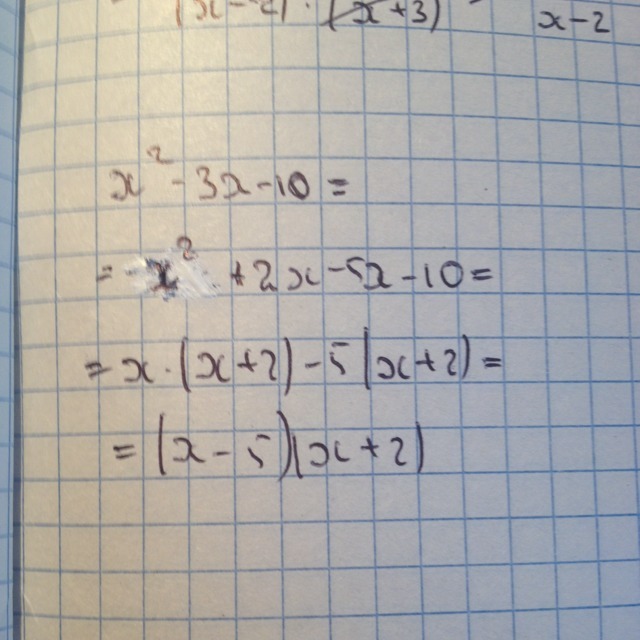 (x-2)·(x+3) x-2
x²-3x-10=
=x²+2x-5x-10=
=x·(x+2)-5(x+2)=
=(x-5)(x+2)